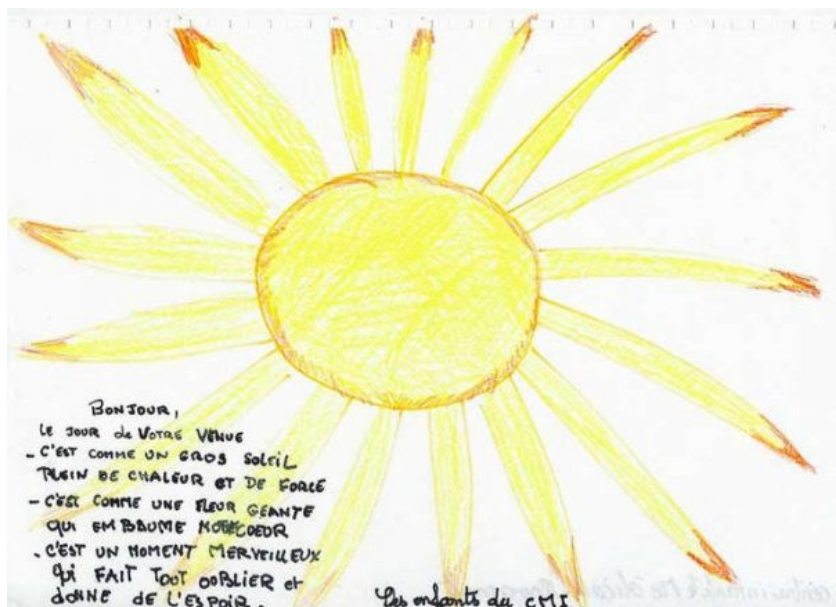 BONJOUR,
LE JOUR de VOTRE VENUE
- C'EST COMME UN GROS SOLEIL
PLEIN DE CHALEUR ET DE FORCE
- C'EST COMME UNE FLEUR GEANTE
QUI EMBAUME COEUR
- C'EST UN MOMENT MERVEILLEUX
Qi FAIT TOUT OUBLIER et
DONNE DE L'ESPOIR.
Les enfants du CMI